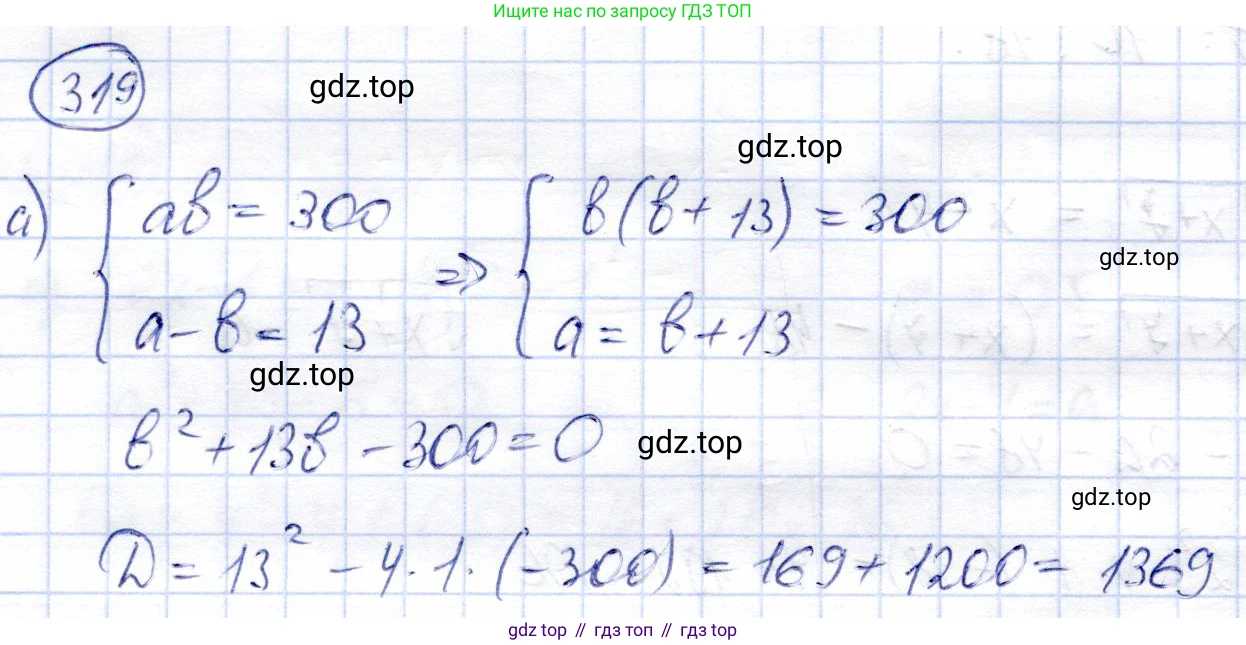 Ищите нас по запросу ГДЗ ТОП
319 gdz.top
gdz.top
а) { ab = 300 => { b(b + 13) = 300
gdz.top
a - b = 13 a = b + 13
gdz.top
b² + 13b - 300 = 0 gdz.top
gdz.top
D = 13² - 4 · 1 · (-300) = 169 + 1200 = 1369
gdz top // гдз топ // gdz top